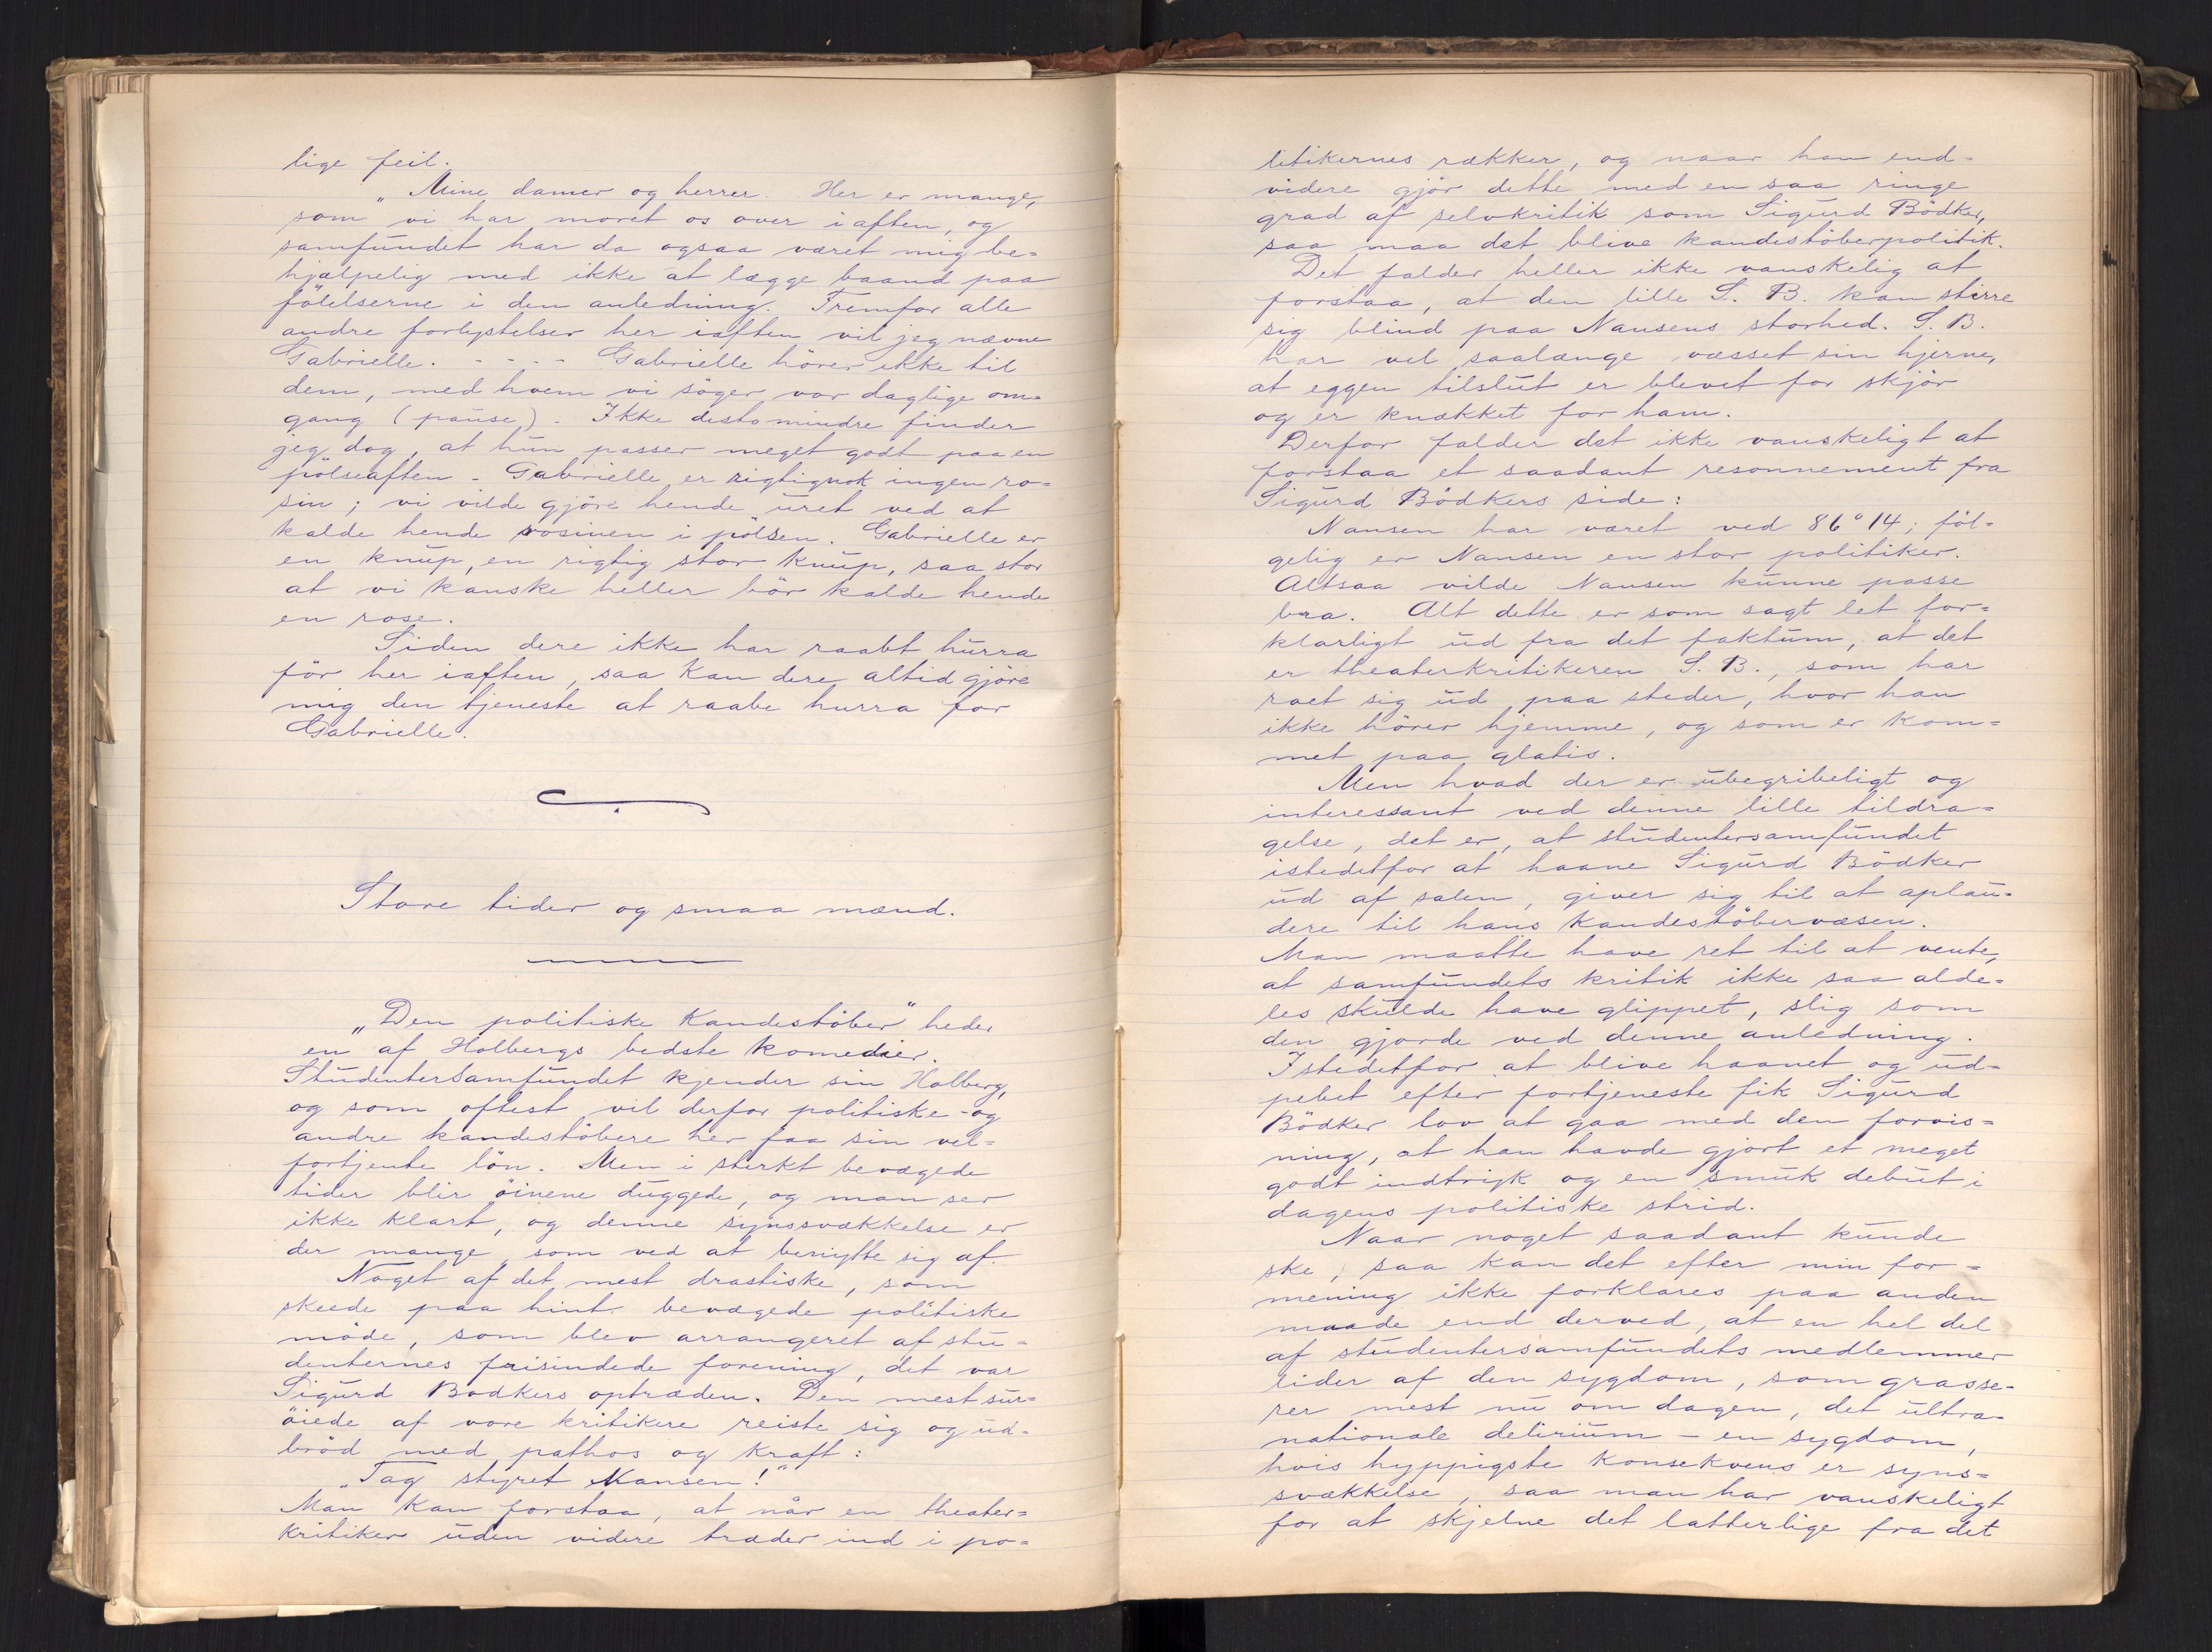 lige feil.
„Mine damer og herrer. Her er mange,
som vi har moret os over i aften, og
samfundet har da ogsaa været mig be=
hjælpelig med ikke at lægge baand paa
følelserne i den anledning. Fremfor alle
andre forlystelser her iaften vil jeg nævne
Gabrielle. - - - - Gabrielle hører ikke til
dem, med hvem vi søger vor daglige om=
gang (pause). Ikke destomindre finder
jeg dog, at hun passer meget godt paa en
pölseaften - Gabrielle er rigtignok ingen ro=
sin; vi vilde gjöre hende uret ved at
kalde hende rosinen i pölsen. Gabrielle er
en knup, en rigtig stor knup, saa stor
at vi kanske heller bör kalde hende
en rose.
Siden dere ikke har raabt hurra
för her iaften, saa kan dere altid gjöre
mig den tjeneste at raabe hurra for
Gabrielle.
Store tider og smaa mænd.
„Den politiske Kandestöber" heder
en af Holbergs bedste komedier.
Studentersamfundet kjender sin Holberg,
og som oftest vil derfor politiske - og
andre kandestöbere her faa sin vel=
fortjente lön. Men i sterkt bevægede
tider blir öinene duggede, og man ser
ikke klart, og denne synssvækkelse er
der mange, som ved at benytte sig af.
Noget af det mest drastiske, som
skeede paa hint bevægede politiske
möde, som blev arrangeret af stu=
denternes frisindede forening, det var
Sigurd Bödkers optræden. Den mest sur=
öiede af vore kritikere reiste sig og ud=
bröd med pathos og kraft:
„Tag styret Nansen!"
Man kan forstaa, at når en theater=
kritiker uden videre træder ind i po=
litikernes rækker, og naar han end=
videre gjör dette med en saa ringe
grad af selvkritik som Sigurd Bödker,
saa maa det blive kandestöberpolitik.
Det falder heller ikke vanskelig at
forstaa, at den lille S. B. kan stirre
sig blind paa Nansens storhed. S. B.
har vel saalænge væsset sin hjerne,
at eggen tilslut er blevet for skjör
og er knækket for ham.
Derfor falder det ikke vanskeligt at
forstaa et saadant resonnement fra
Sigurd Bödkers side:
Nansen har været ved 86° 14; föl=
gelig er Nansen en stor politiker.
Altsaa vilde Nansen kunne passe
bra. Alt dette er som sagt let for=
klarligt ud fra det faktum, at det
er theaterkritikeren S. B., som har
roet sig ud paa steder, hvor han
ikke hörer hjemme, og som er kom=
met paa glatis.
Men hvad der er ubegribeligt og
interessant ved denne lille tildra=
gelse, det er, at studentersamfundet
istedetfor at haane Sigurd Bödker
ud af salen, giver sig til at aplau=
dere til hans kandestöbervæsen.
Man maatte have ret til at vente,
at samfundets kritik ikke saa alde=
les skulde have glippet, slig som
den gjorde ved denne anledning.
Istedetfor at blive haanet og ud=
pebet efter fortjeneste fik Sigurd
Bödker lov at gaa med den forvis=
ning, at han havde gjort et meget
godt indtryk og en smuk debut i
dagens politiske strid.
Naar noget saadant kunde
ske, saa kan det efter min for=
mening ikke forklares paa anden
maade end derved, at en hel del
af studentersamfundets medlemmer
lider af den sygdom, som grasse=
rer mest nu om dagen, det ultra=
nationale delirium - en sygdom,
hvis hyppigste konsekvens er syns=
svækkelse, saa man har vanskeligt
for at skjelne det latterlige fra det